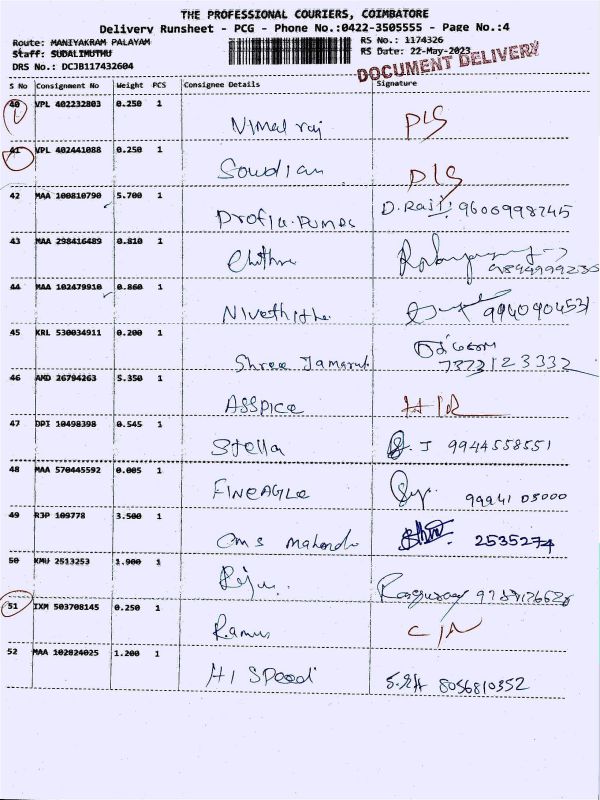 THE PROFESSIONAL COURIERS, COIMBATORE
Delivery Runsheet - PCG - Phone No.:0422-3505555 - Page No.:4
Route: MANIYAKRAM PALAYAM RS No.: 1174326
Staff: SUDALIMUTHU RS Date: 22-May-2023
DRS No.: DCJB117432604 DOCUMENT DELIVERY
S No Consignment No Weight PCS Consignee Details Signature
40 VPL 402232803 0.250 1
Nimal raj DLS
41 VPL 402441088 0.250 1
Soundian DLS
42 MAA 100810790 5.700 1
Profia.Pumps D. Raji 9600998745
43 MAA 298416489 0.810 1
Chithra 9894999235
44 MAA 102479910 0.860 1
Nivethitha 9940904531
45 KRL 530034911 0.200 1
Shree 7373123332
46 AMD 26794263 5.350 1
ASSPICE
47 DPI 10498398 0.545 1
Stella J 9944558551
48 MAA 570445592 0.005 1
FINEAGLE 99941 05000
49 RJP 109778 3.500 1
cms 2535274
50 KMU 2513253 1.900 1
Reju
51 IXM 503708145 0.250 1
Ramus
52 MAA 102824025 1.200 1
HI SPeed 8056810352